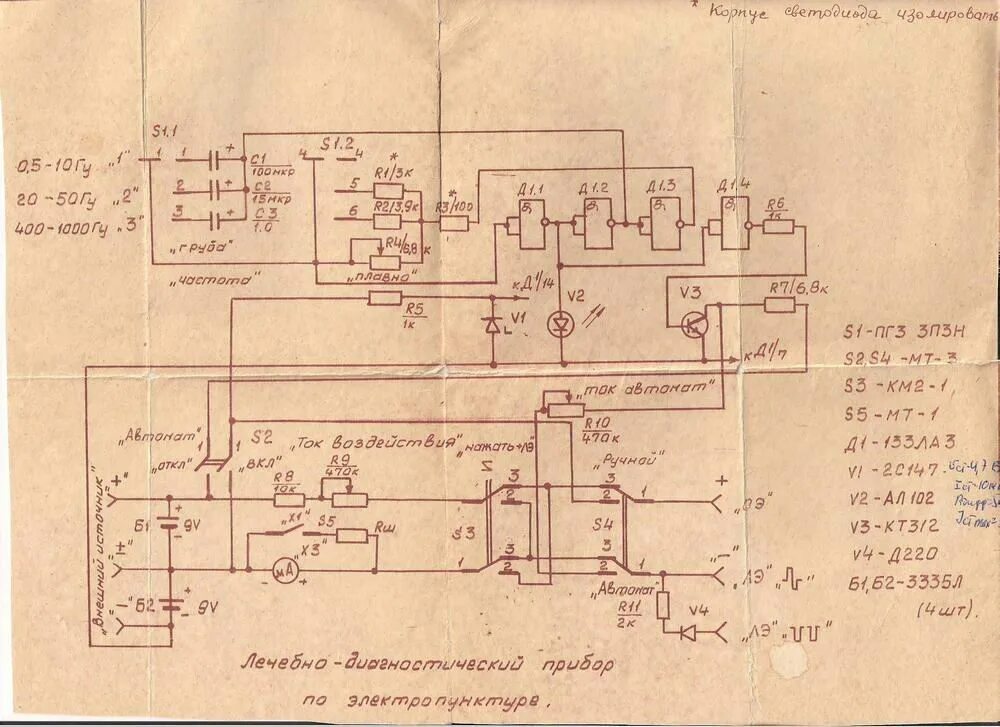 * Корпус светодиода изолировать
S1.1
0,5-10Гц „1"
20-50Гц „2"
400-1000Гц „3"
1
1
2
3
+
+
+
C1
100мкр
C2
15мкр
C3
1.0
„груба"
„частота"
S1.2
4
4
5
6
*
R1/3к
R2/3,9к
R4/6,8 к
„плавно"
*
R3/100
Д1.1
Д1.2
Д1.3
Д1.4
&
&
&
&
R6
1к
R5
1к
к Д1/14
V1
V2
V3
R7/6,8к
к Д1/7
S1-ПГ3 3П3Н
S2,S4-МТ-3
S3-КМ2-1,
S5-МТ-1
Д1-133ЛА3
V1-2С147
V2-АЛ102
V3-КТ312
V4-Д220
Б1,Б2-3335Л
(4шт).
„ток автомат"
R10
470к
„Автомат"
„откл"
1
1
S2
„ВКЛ"
„Ток воздействия"
„нажать+ЛЭ"
R8
10к
R9
470к
„Ручной"
„Внешний источник"
„+"
„-"
Б1
9V
Б2
9V
+
-
+
-
„X1"
S5
Rш
„X3"
μА
-
+
1
3
2
S3
3
2
1
3
2
S4
3
2
1
1
„Автомат"
+
„ОЭ"
„-"
„ЛЭ"
R11
2к
V4
„ЛЭ"
Лечебно-диагностический прибор
по электропунктуре.